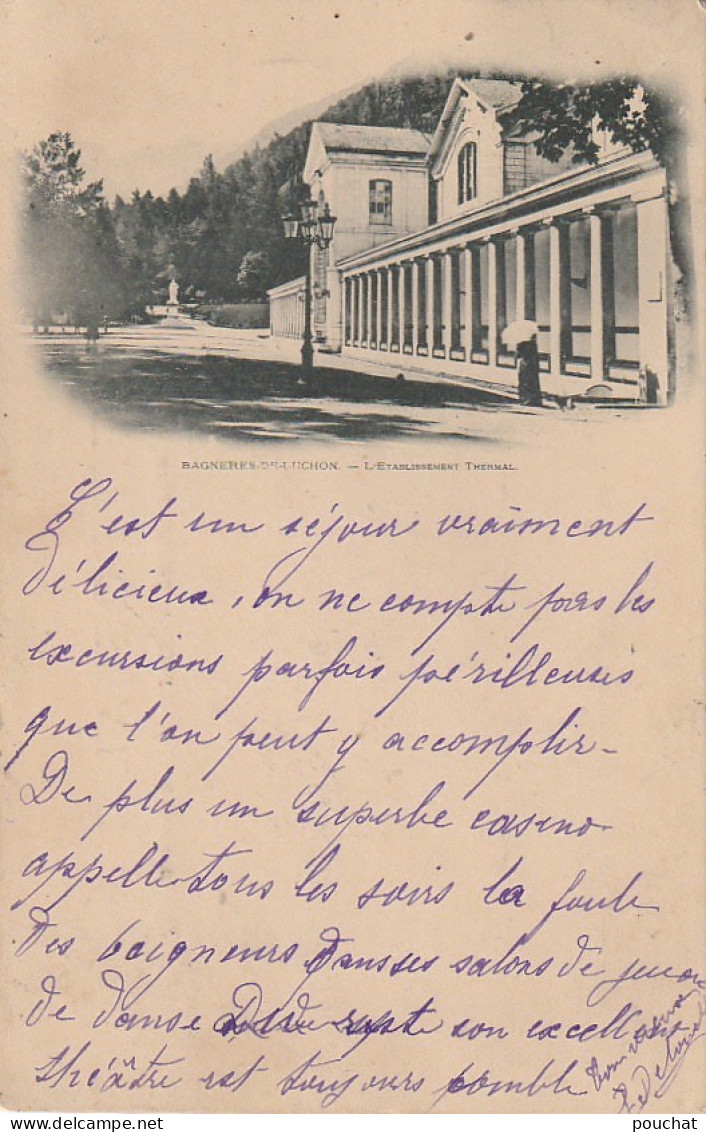 BAGNERES-DE-LUCHON. — L'ETABLISSEMENT THERMAL.
C'est un séjour vraiment
délicieux, on ne compte pas les
excursions parfois périlleuses
que l'on peut y accomplir -
De plus un superbe casino
appelle tous les soirs la foule
des baigneurs dans ses salons de jeu ou
de danse Du reste son excellent
théâtre est toujours comble
pouchat